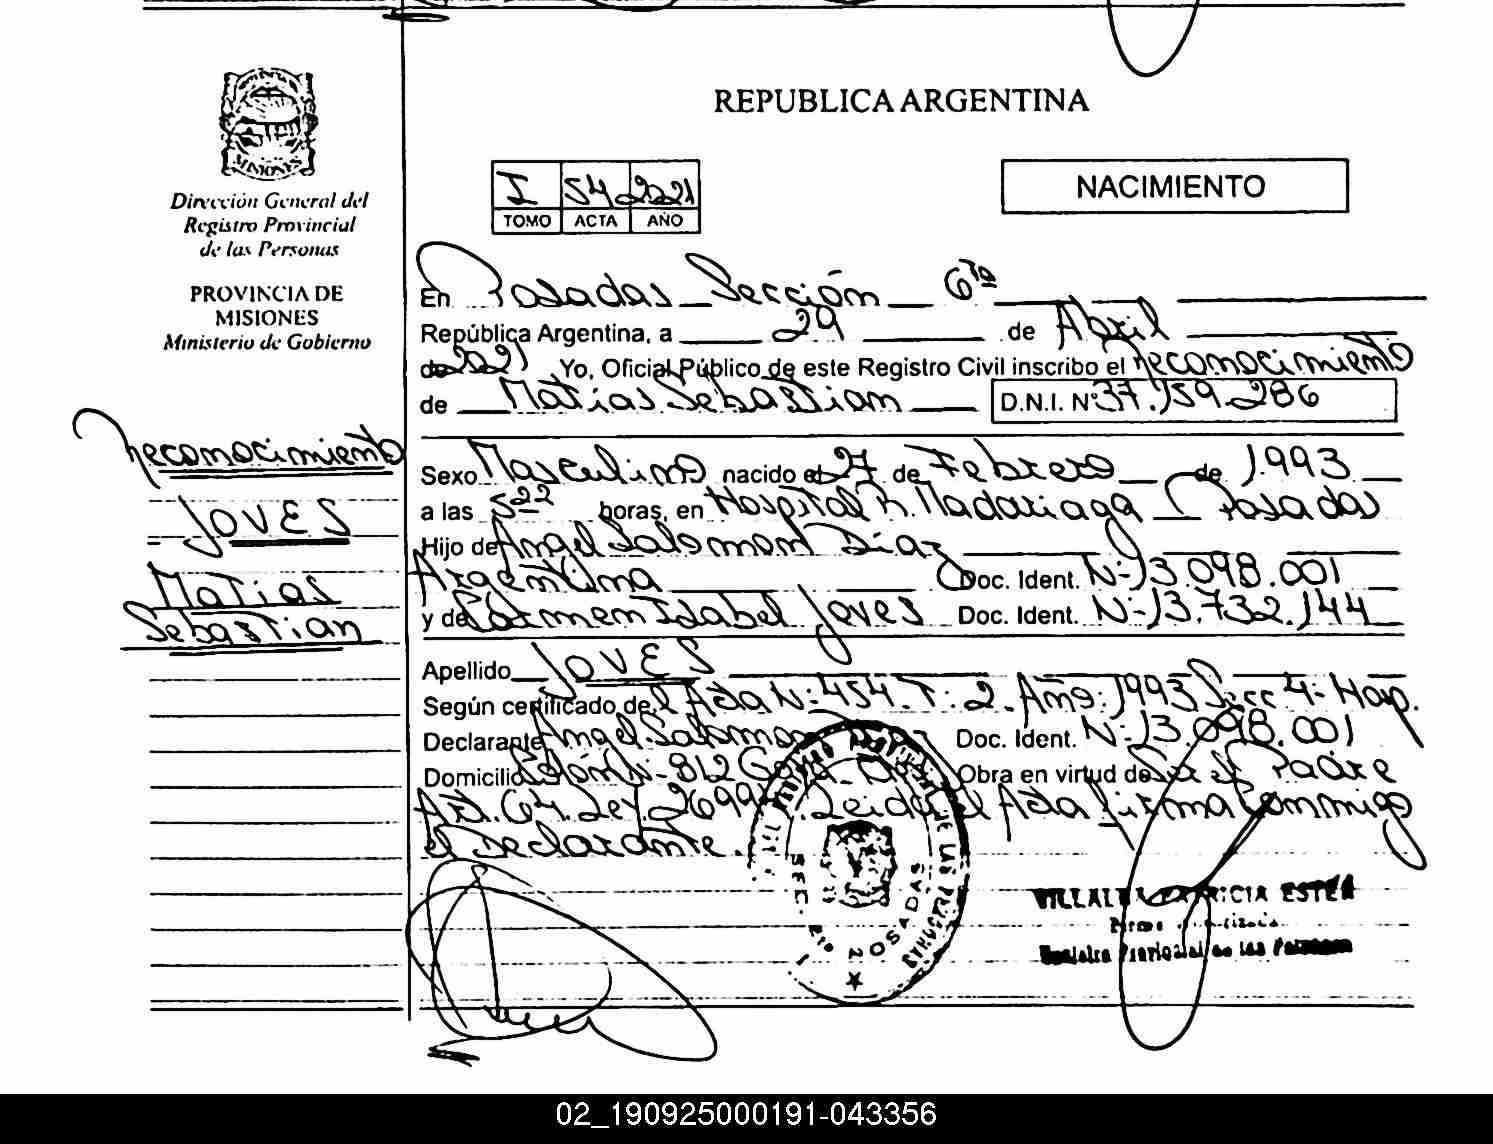 REPUBLICA ARGENTINA
MISIONES
Dirección General del
Registro Provincial
de las Personas
PROVINCIA DE
MISIONES
Ministerio de Gobierno
I 54 2021
TOMO ACTA AÑO
NACIMIENTO
En Posadas Sección 6ta
República Argentina, a 29 de Abril
de 2021 Yo, Oficial Público de este Registro Civil inscribo el reconocimiento
de Matias Sebastian D.N.I. Nº 37.159.286
reconocimiento
JOVES
Matias
Sebastian
Sexo Masculino nacido el 27 de Febrero de 1993
a las 5 22 horas, en Hospital R. Madariaga Posadas
Hijo de Angel Salomon Diaz
Argentina Doc. Ident. Nº 13.098.001
y de Carmen Isabel Joves Doc. Ident. Nº 13.732.144
Apellido JOVES
Según certificado del Acta Nº 454. T: 2. Año: 1993 Secc 4- Hosp.
Declarante Angel Salomon Diaz Doc. Ident. Nº 13.098.001
Domicilio 812 Obra en virtud de Ser el Padre
Art. 64. Ley 26994. Leida el Acta firma Conmigo
el Declarante.
SEC. 6ta POSADAS
VILLALBA PATRICIA ESTER
Registro Provincial de las Personas
02_190925000191-043356